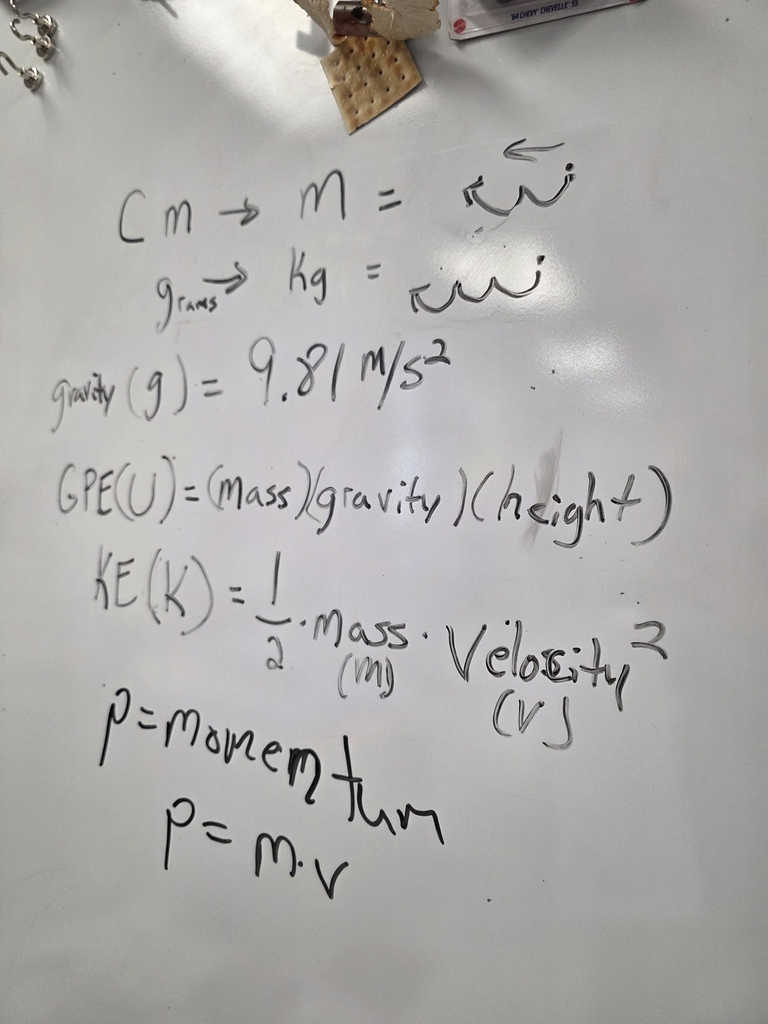 '64 CHEVY CHEVELLE SS
Cm → m =
grams → kg =
gravity (g) = 9.81 m/s²
GPE(U) = (mass)(gravity)(height)
KE(K) = 1/2 · mass · Velocity²
(m) (v)
p = momentum
p = m·v